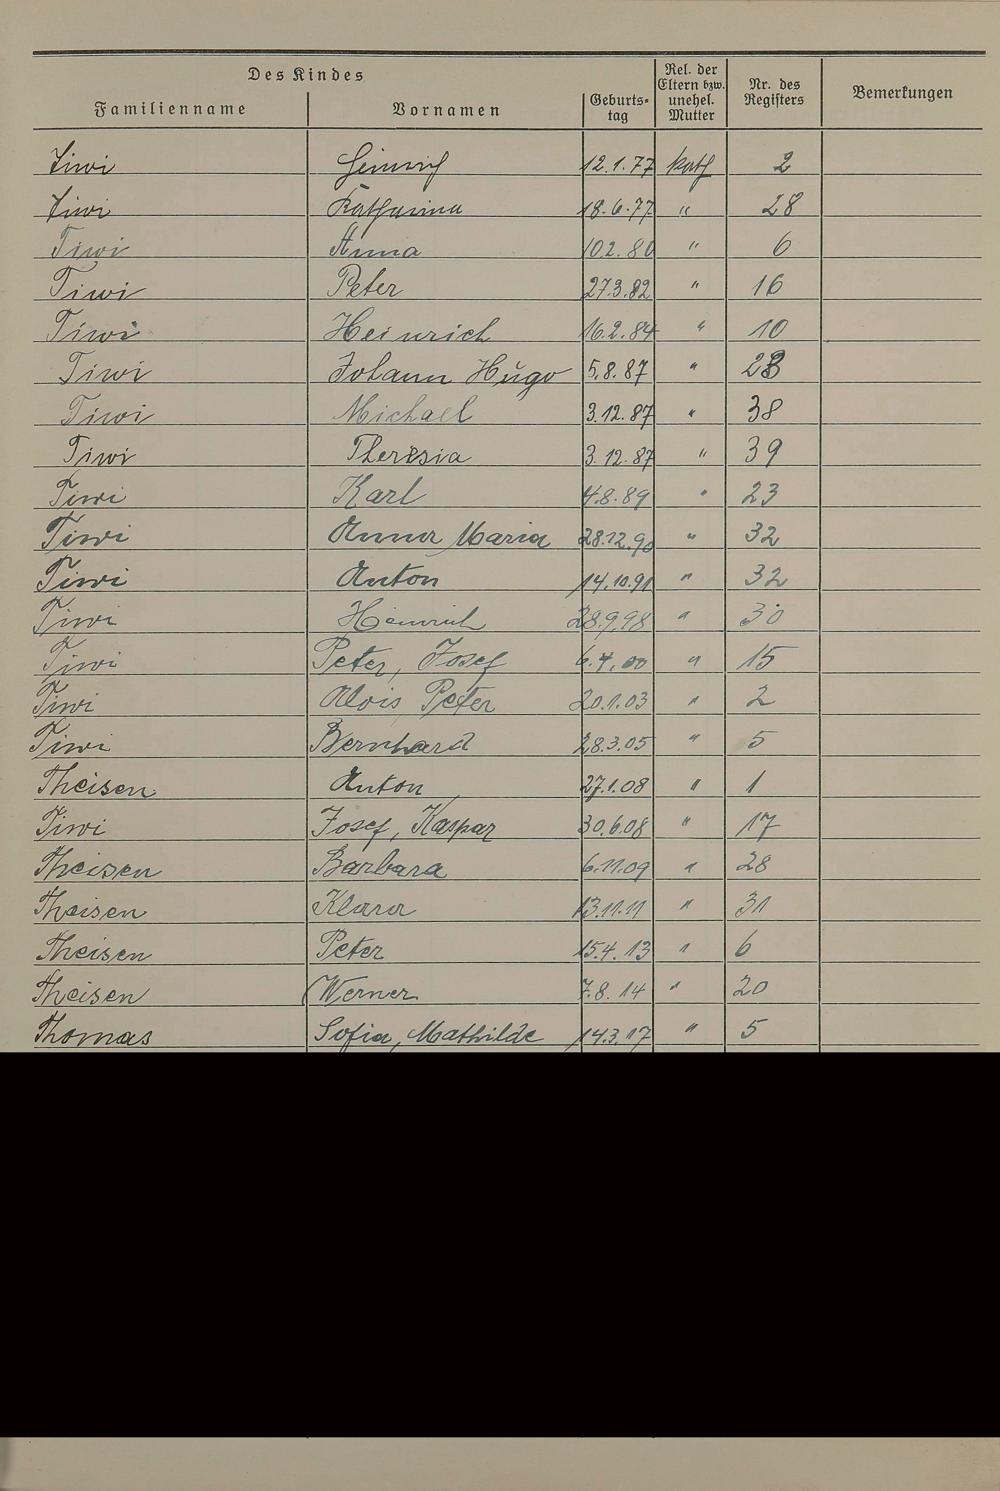 Des Kindes
Familienname Vornamen Geburts-tag Rel. der Eltern bzw. unehel. Mutter Nr. des Registers Bemerkungen
Tiwi Heinrich 12.1.77 kath 2
Tiwi Katharina 18.6.77 " 28
Tiwi Anna 10.2.80 " 6
Tiwi Peter 27.3.82 " 16
Tiwi Heinrich 16.2.84 " 10
Tiwi Johann Hugo 5.8.87 " 28
Tiwi Michael 3.12.87 " 38
Tiwi Theresia 3.12.87 " 39
Tiwi Karl 4.8.89 " 23
Tiwi Anna Maria 28.12.90 " 32
Tiwi Anton 14.10.91 " 32
Tiwi Heinrich 28.9.98 " 30
Tiwi Peter, Josef 6.4.00 " 15
Tiwi Alois Peter 20.1.03 " 2
Tiwi Bernhard 28.3.05 " 5
Theisen Anton 27.1.08 " 1
Tiwi Josef, Kaspar 30.6.08 " 17
Theisen Barbara 6.11.09 " 28
Theisen Klara 13.11.11 " 31
Theisen Peter 15.4.13 " 6
Theisen Werner 7.8.14 " 20
Thomas Sofia, Mathilde 14.3.17 " 5